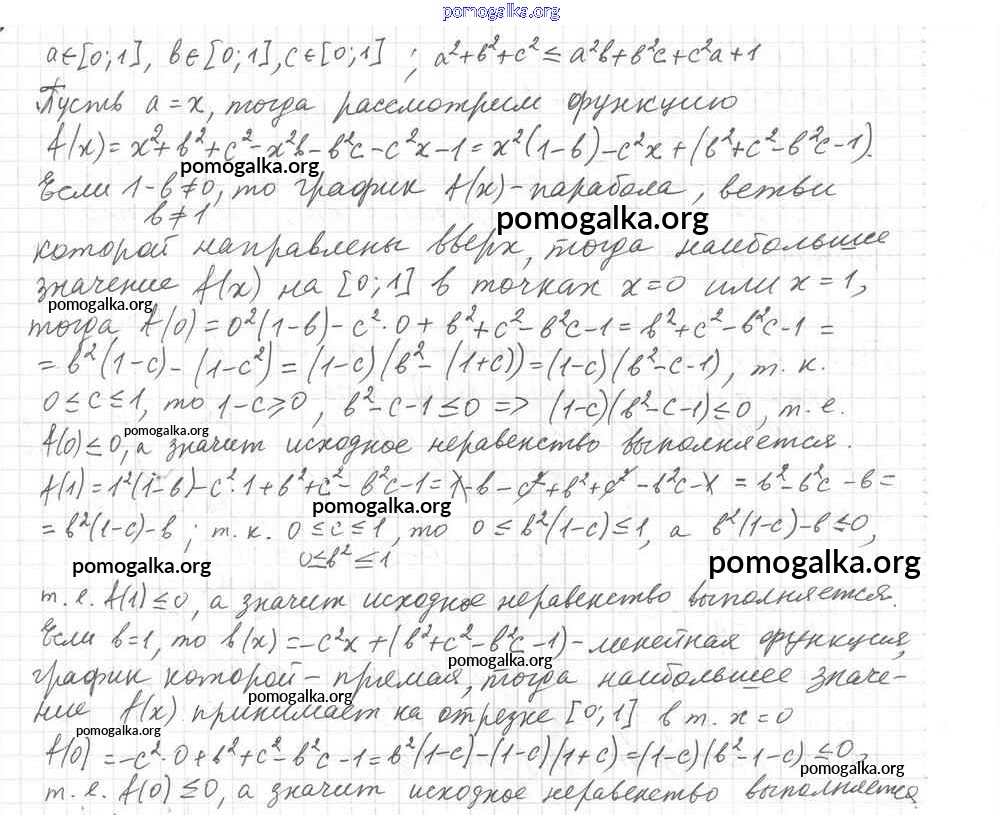 pomogalka.org
a∈[0;1], b∈[0;1], c∈[0;1] ; a²+b²+c² ≤ a²b+b²c+c²a+1
Пусть a = x, тогда рассмотрим функцию
f(x) = x²+b²+c²-x²b-b²c-c²x-1 = x²(1-b)-c²x+(b²+c²-b²c-1).
pomogalka.org
Если 1-b≠0, то график f(x) - парабола, ветви
b≠1
pomogalka.org
которой направлены вверх, тогда наибольшее
значение f(x) на [0;1] в точках x=0 или x=1,
pomogalka.org
тогда f(0) = 0²(1-b)-c²·0+b²+c²-b²c-1 = b²+c²-b²c-1 =
= b²(1-c)-(1-c²) = (1-c)(b²-(1+c)) = (1-c)(b²-c-1), т.к.
0≤c≤1, то 1-c≥0, b²-c-1≤0 => (1-c)(b²-c-1)≤0, т.е.
pomogalka.org
f(0)≤0, а значит исходное неравенство выполняется.
f(1) = 1²(1-b)-c²·1+b²+c²-b²c-1 = 1-b-c²+b²+c²-b²c-1 = b²-b²c-b =
pomogalka.org
= b²(1-c)-b ; т.к. 0≤c≤1, то 0≤b²(1-c)≤1, а b²(1-c)-b≤0,
0≤b²≤1
pomogalka.org
pomogalka.org
т.е. f(1)≤0, а значит исходное неравенство выполняется.
Если b=1, то f(x) = -c²x+(b²+c²-b²c-1) - линейная функция,
pomogalka.org
график которой - прямая, тогда наибольшее значе-
pomogalka.org
ние f(x) принимает на отрезке [0;1] в т. x=0
pomogalka.org
f(0) = -c²·0+b²+c²-b²c-1 = b²(1-c)-(1-c)(1+c) = (1-c)(b²-1-c) ≤0,
pomogalka.org
т.е. f(0)≤0, а значит исходное неравенство выполняется